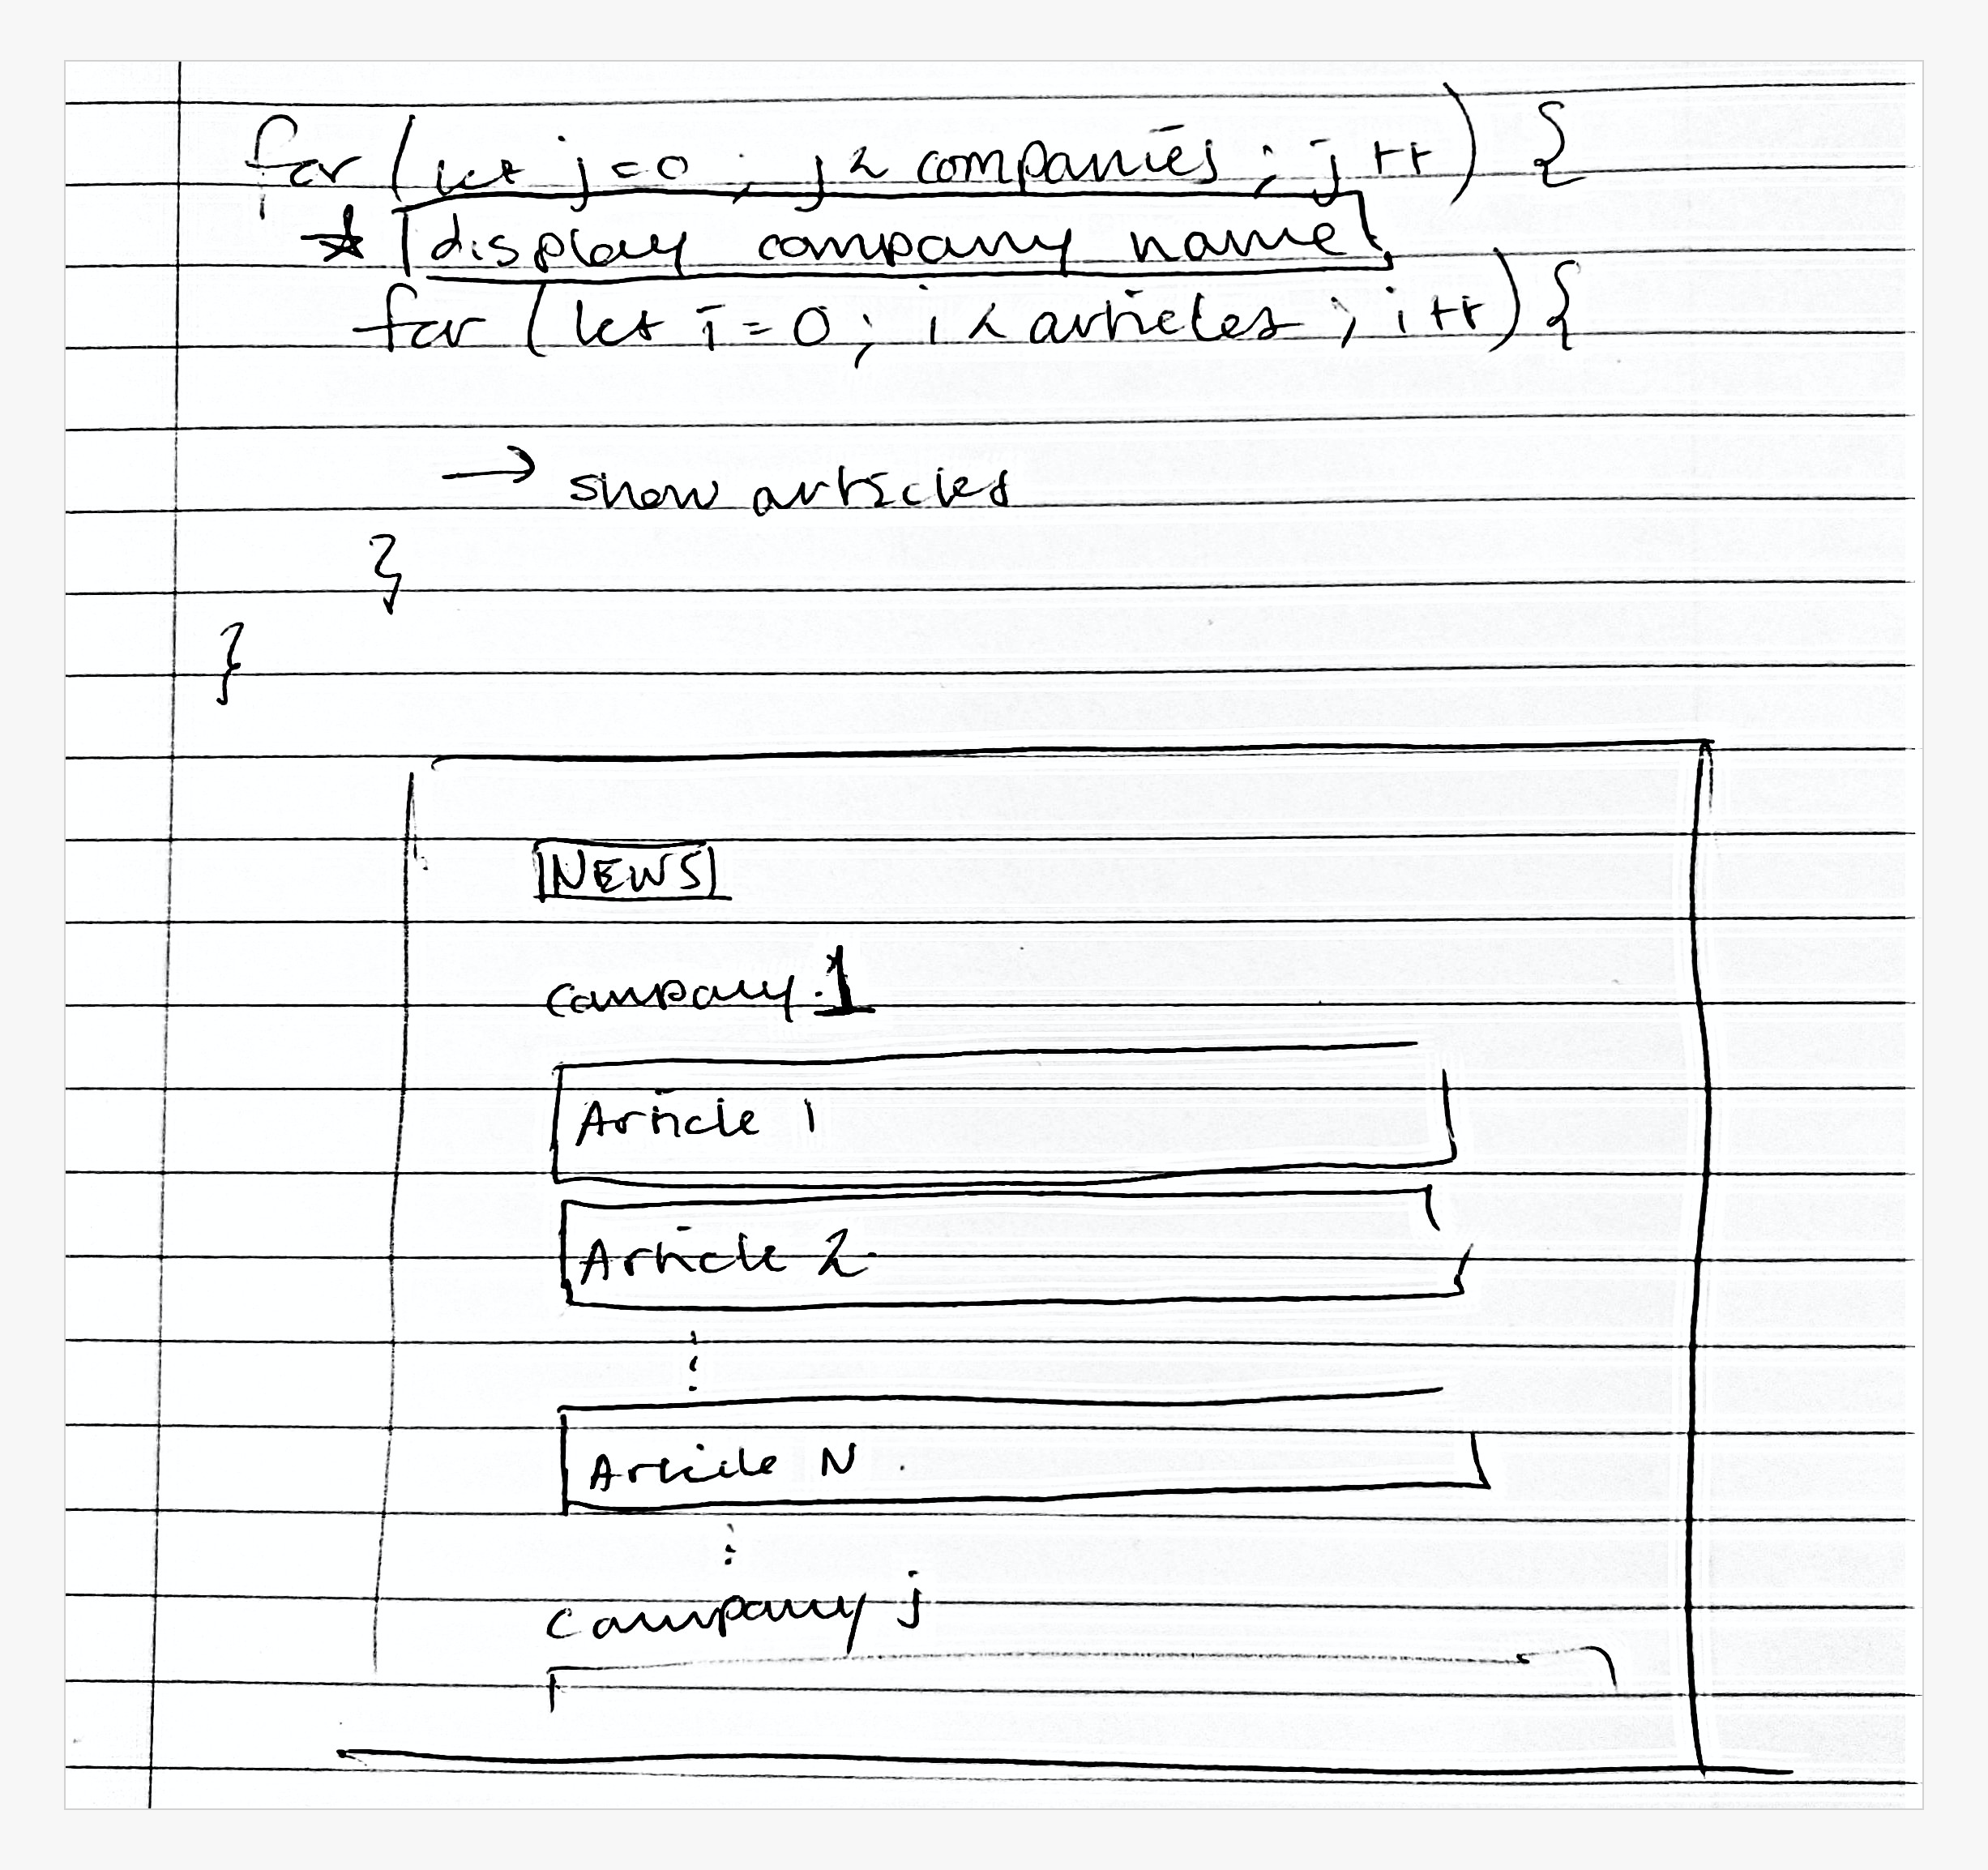 for (let j=0 ; j < companies ; j++) {
* display company name
for (let i=0 ; i < articles ; i++) {
→ show articles
}
}
NEWS
company 1
Article 1
Article 2
⋮
Article N
⋮
company j